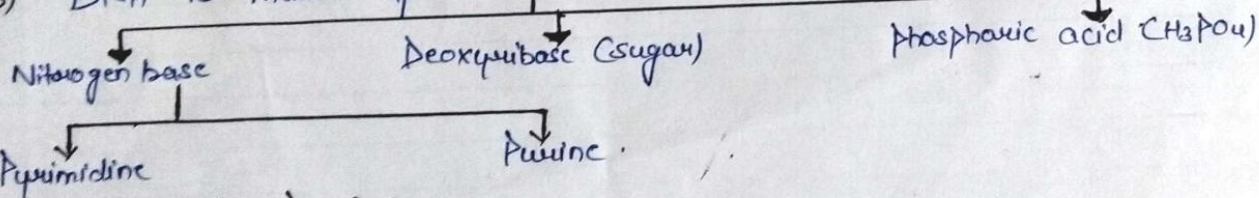 Nitrogen base
Deoxyribose (sugar)
Phosphoric acid (H3PO4)
Pyrimidine
Purine.